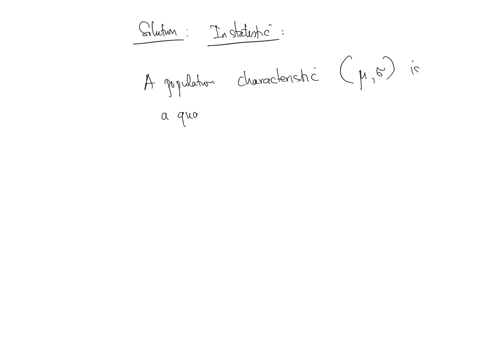 Solution: In statestic:
A population characteristic (μ, σ) is
a quo